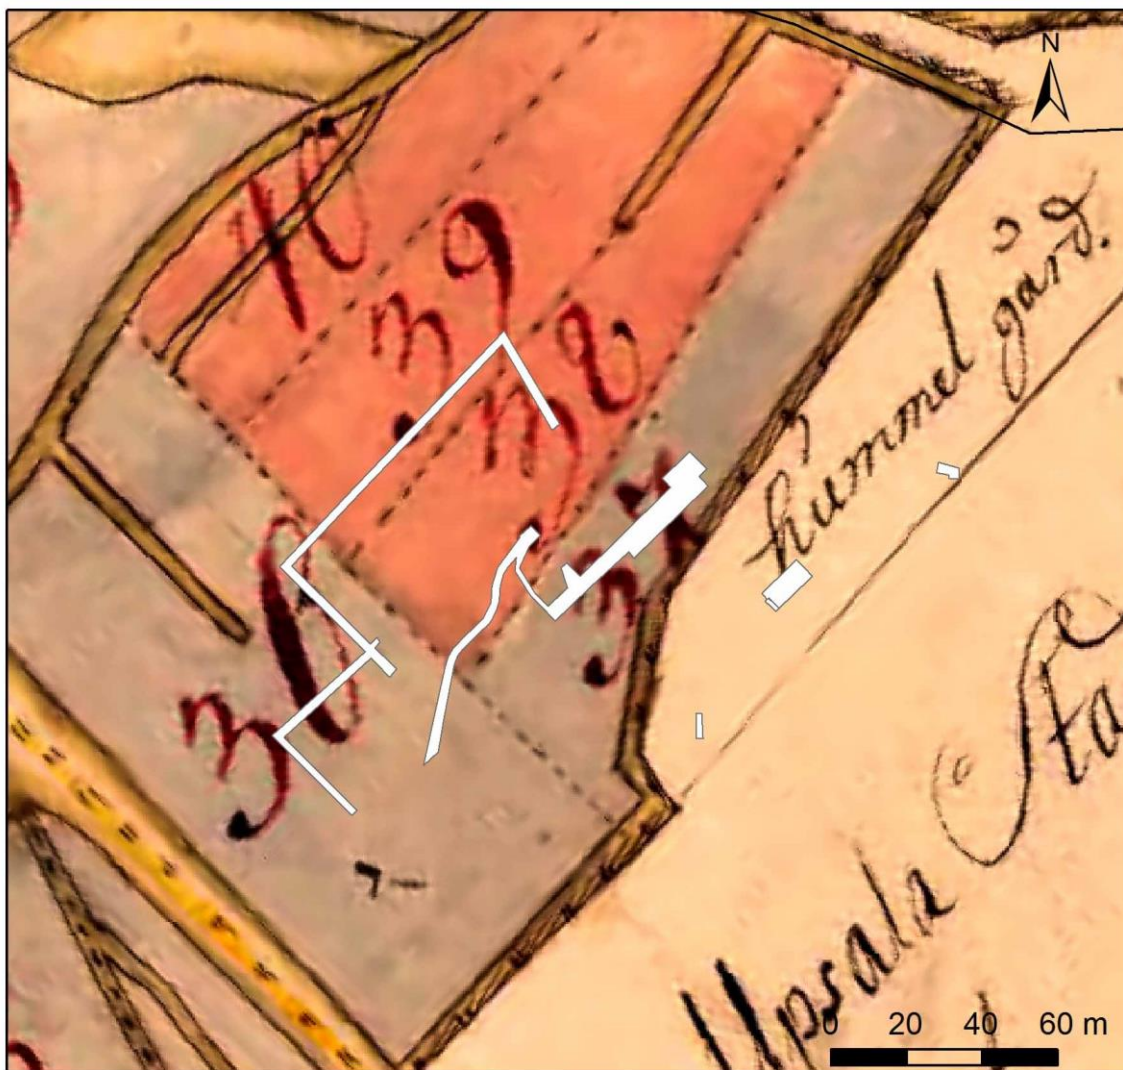 N
40
39
38
37
36
hummel gård.
Upsala Sta
0 20 40 60 m